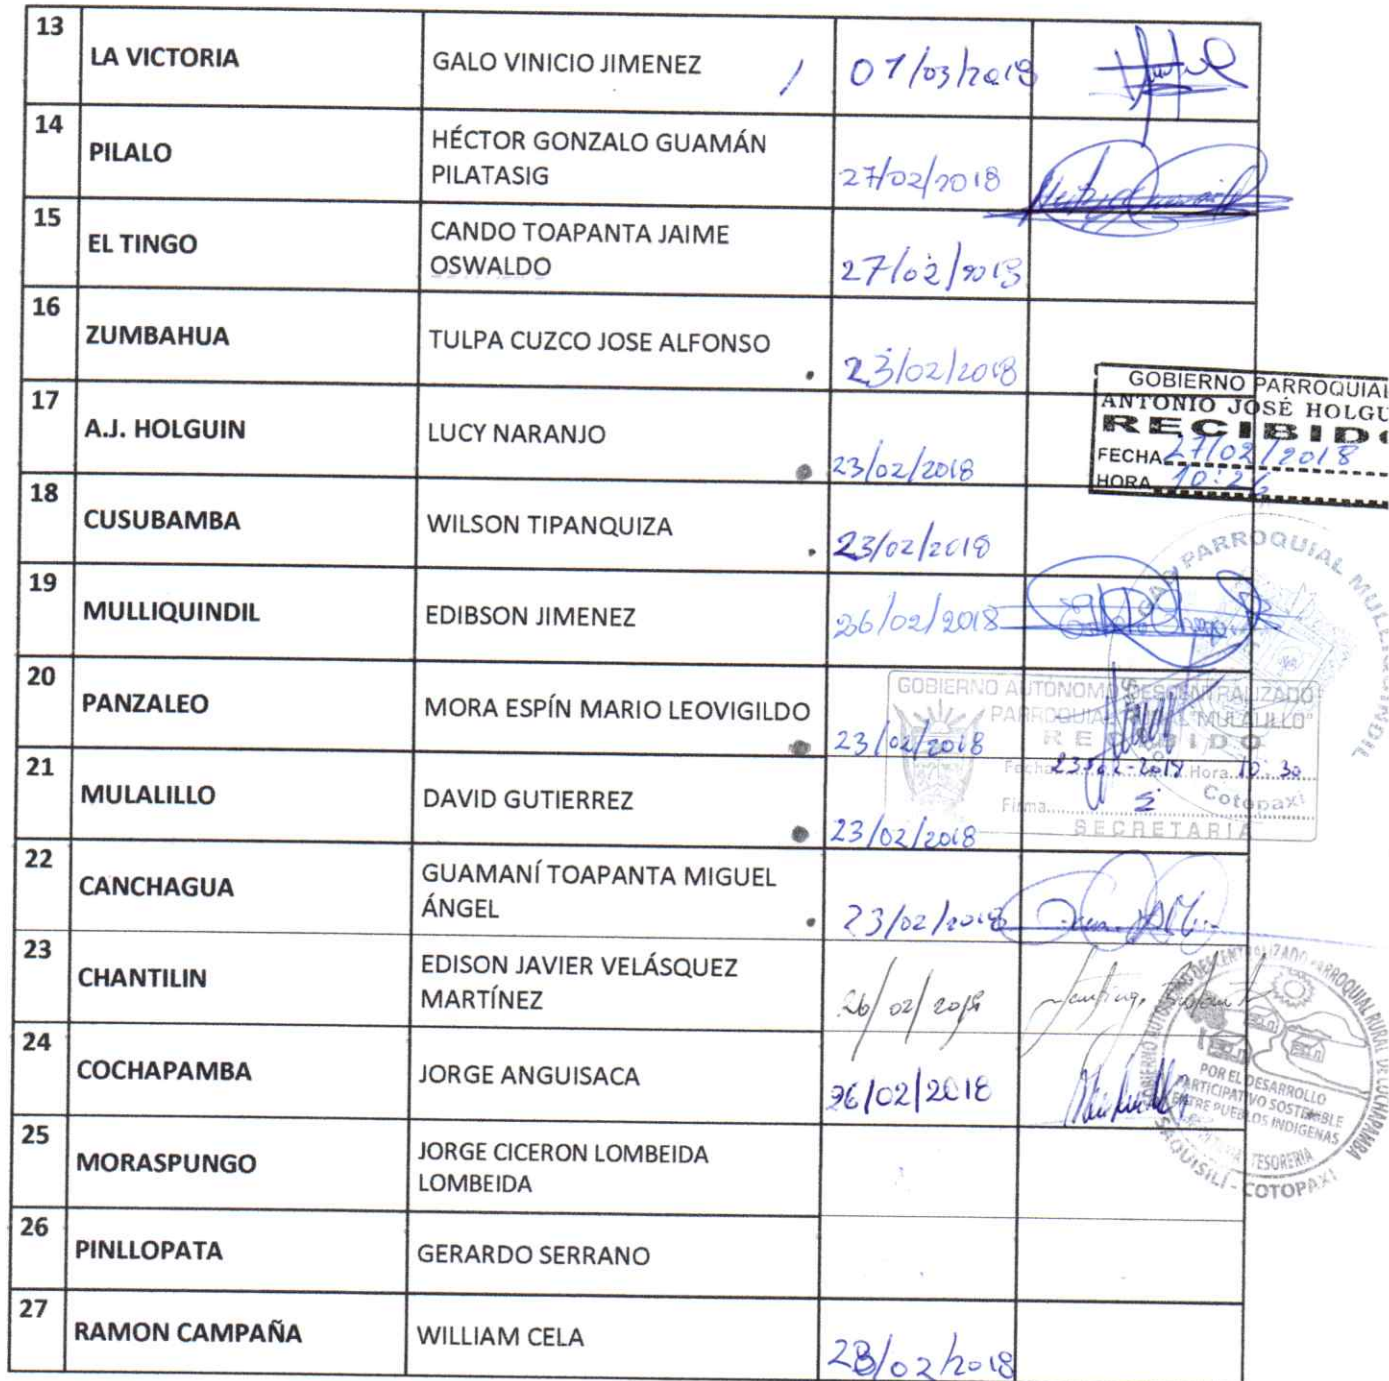 13
LA VICTORIA
GALO VINICIO JIMENEZ
07/03/2018
14
PILALO
HÉCTOR GONZALO GUAMÁN
PILATASIG
27/02/2018
15
EL TINGO
CANDO TOAPANTA JAIME
OSWALDO
27/02/2018
16
ZUMBAHUA
TULPA CUZCO JOSE ALFONSO
23/02/2018
17
A.J. HOLGUIN
LUCY NARANJO
23/02/2018
GOBIERNO PARROQUIAL
ANTONIO JOSÉ HOLGU
RECIBIDO
FECHA 27/02/2018
HORA 10:26
18
CUSUBAMBA
WILSON TIPANQUIZA
23/02/2018
19
MULLIQUINDIL
EDIBSON JIMENEZ
26/02/2018
GAD PARROQUIAL MULLIQUINDIL
20
PANZALEO
MORA ESPÍN MARIO LEOVIGILDO
23/02/2018
GOBIERNO AUTÓNOMO DESCENTRALIZADO
PARROQUIAL "MULALILLO"
RECIBIDO
Fecha 23-02-2018 Hora 10:30
Firma
SECRETARIA
Cotopaxi
21
MULALILLO
DAVID GUTIERREZ
23/02/2018
22
CANCHAGUA
GUAMANÍ TOAPANTA MIGUEL
ÁNGEL
23/02/2018
23
CHANTILIN
EDISON JAVIER VELÁSQUEZ
MARTÍNEZ
26/02/2018
24
COCHAPAMBA
JORGE ANGUISACA
26/02/2018
GOBIERNO AUTÓNOMO DESCENTRALIZADO PARROQUIAL RURAL DE COCHAPAMBA
POR EL DESARROLLO
PARTICIPATIVO SOSTENIBLE
ENTRE PUEBLOS INDIGENAS
TESORERIA
SAQUISILÍ - COTOPAXI
25
MORASPUNGO
JORGE CICERON LOMBEIDA
LOMBEIDA
26
PINLLOPATA
GERARDO SERRANO
27
RAMON CAMPAÑA
WILLIAM CELA
28/02/2018